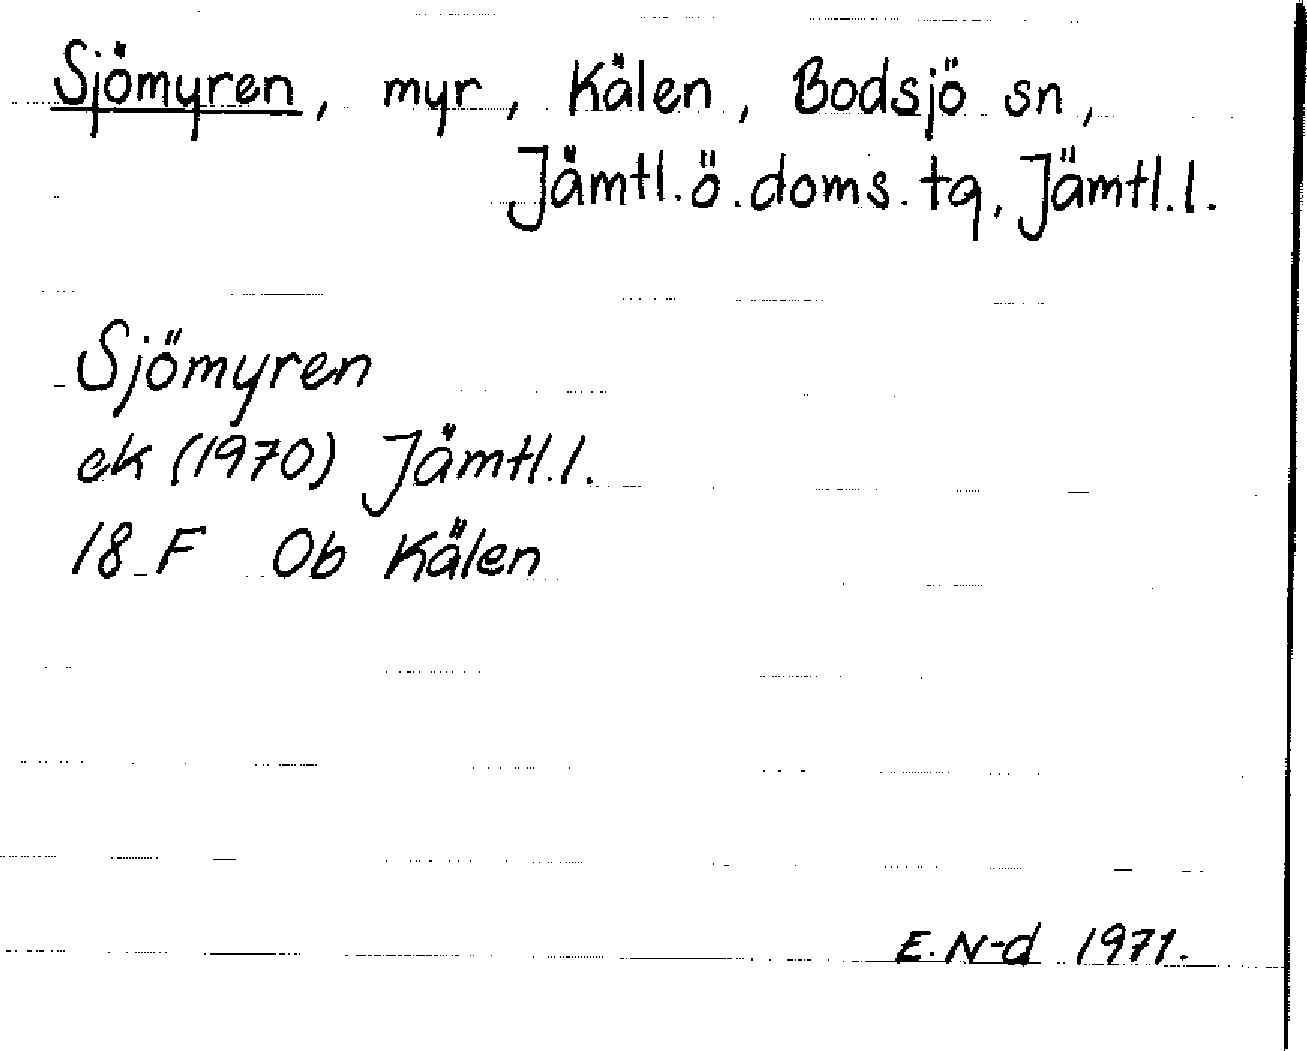 Sjömyren, myr, Kälen, Bodsjö sn,
Jämtl. ö. doms. tg, Jämtl. l.
Sjömyren
ek (1970) Jämtl. l.
18 F Ob Kälen
E. N-d 1971.